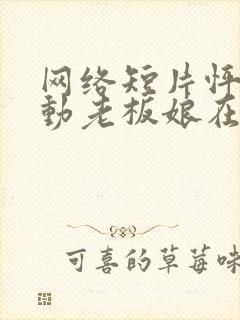 网络短片怦
動老板娘在
可喜的草莓味